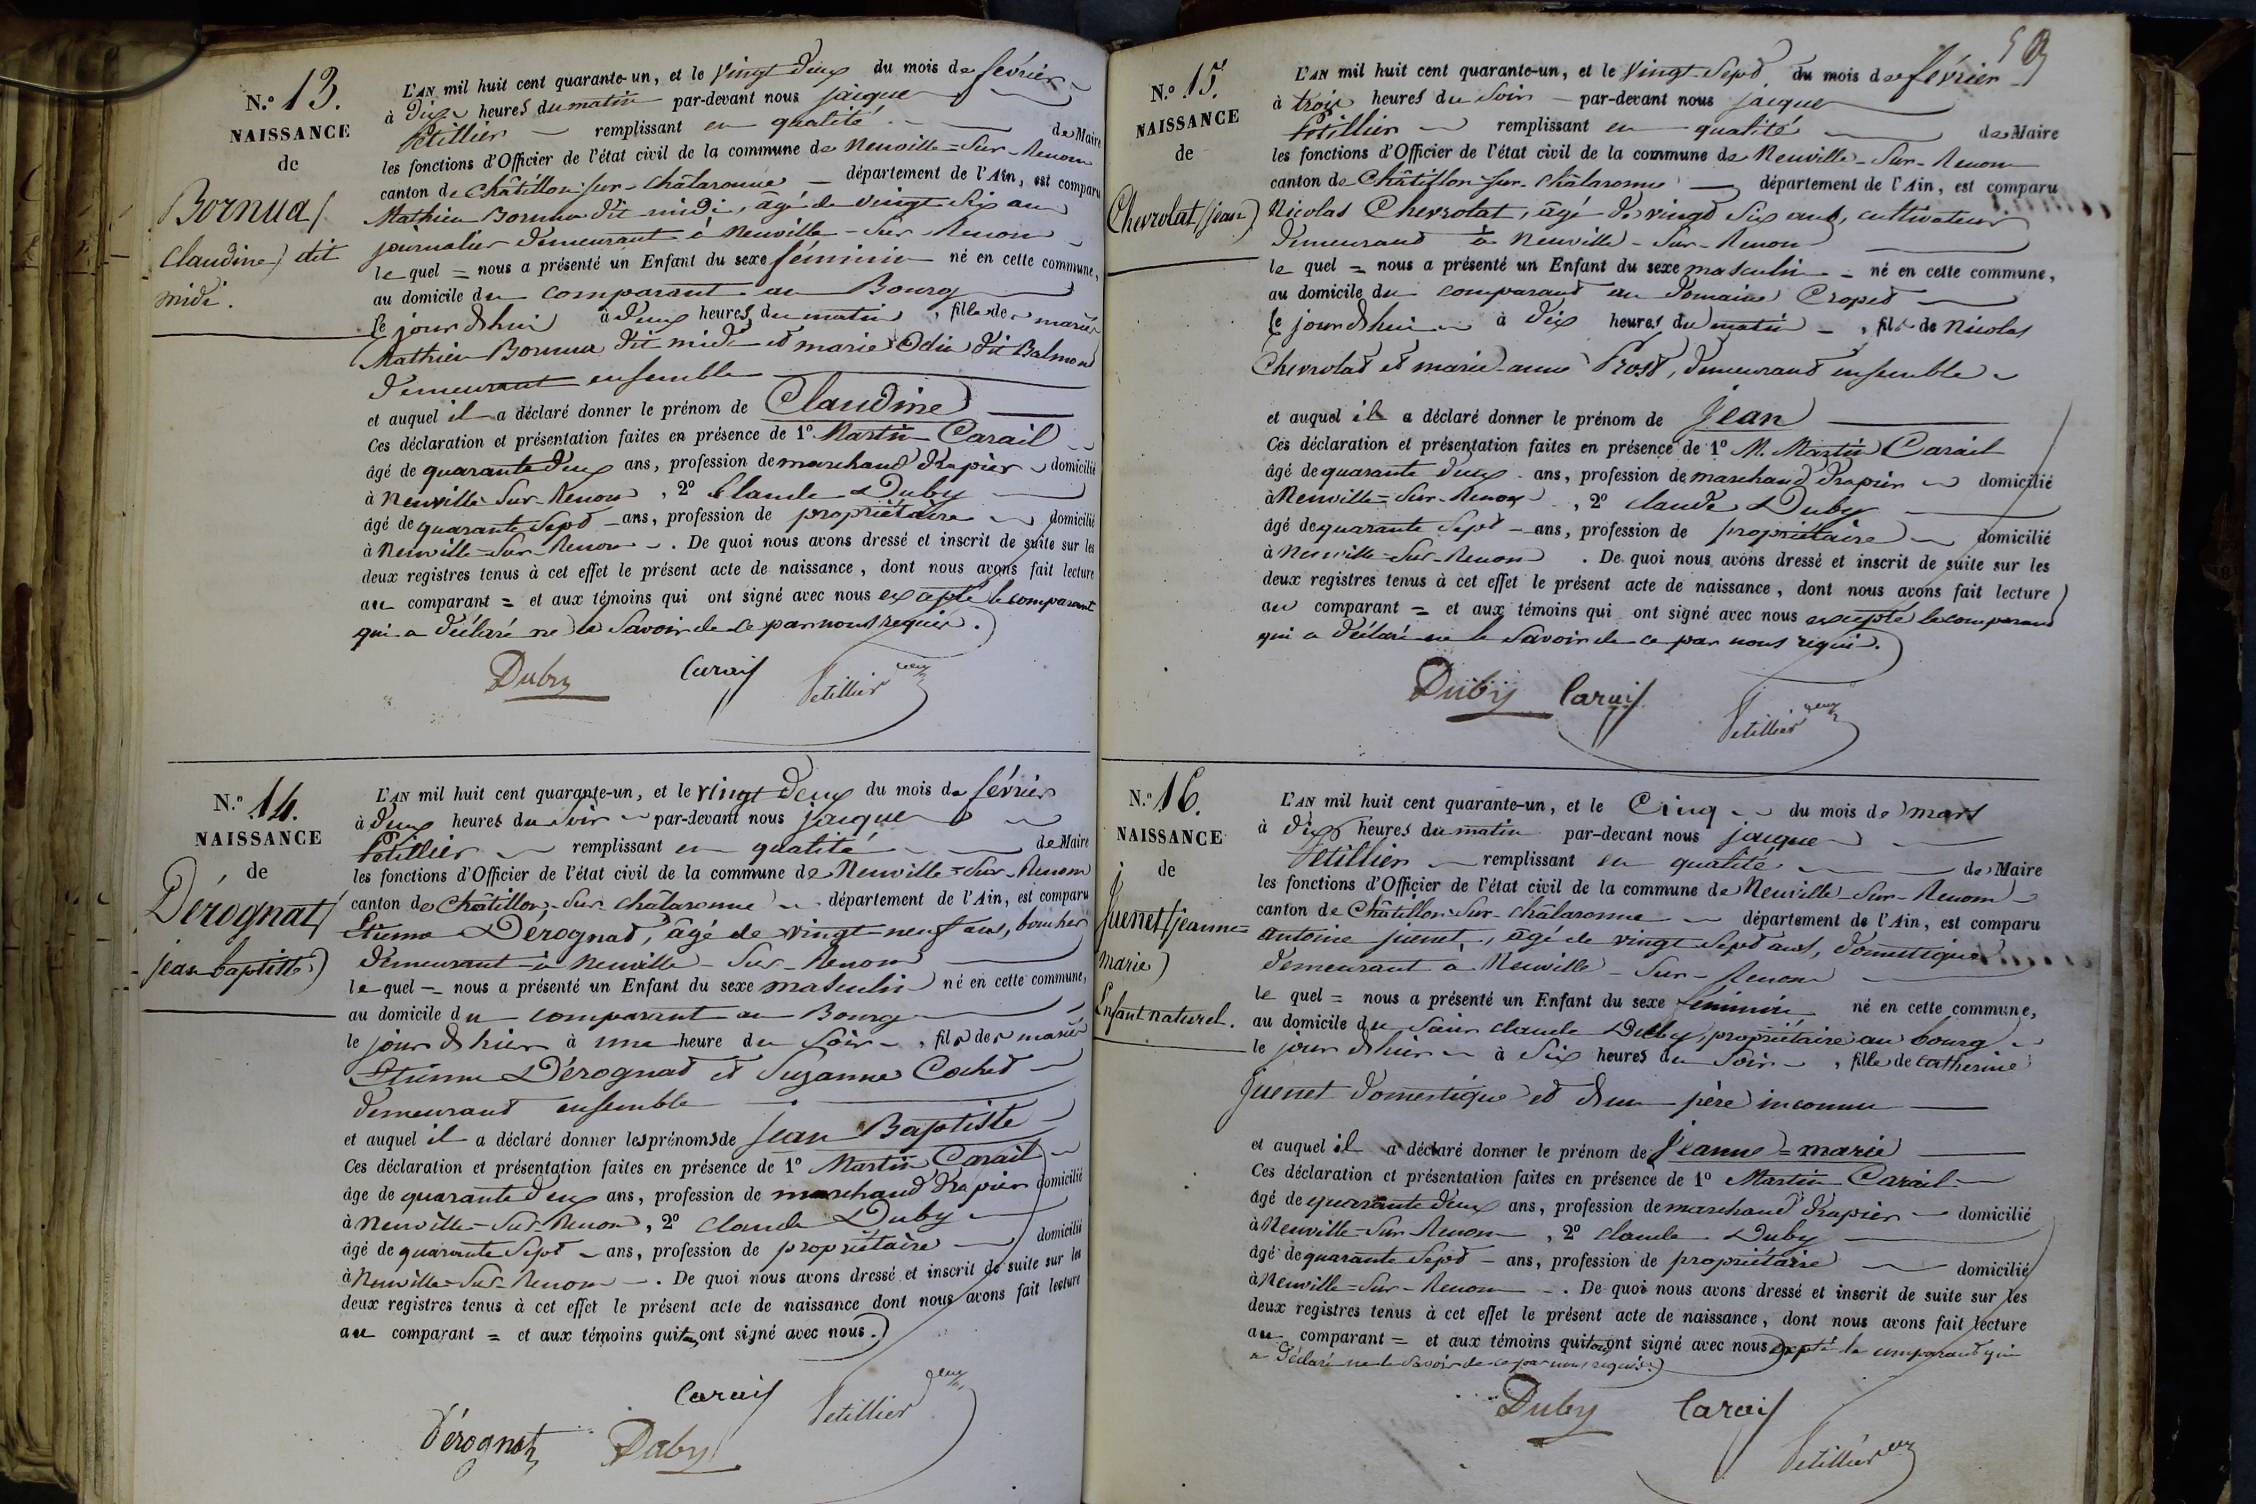 N.o 13.
NAISSANCE
de
Bornua
Claudine) dit
midi.
L'AN mil huit cent quarante-un, et le vingt deux du mois de février
à dix heures du matin par-devant nous jacque
Petillier remplissant en qualité de Maire
les fonctions d'Officier de l'état civil de la commune de Neuville=Sur-Renom
canton de Châtillon-sur-Châlaronne département de l'Ain, est comparu
Mathieu Bornua dit midi, âgé de vingt six ans
journalier demeurant à Neuville-Sur Renom
le quel = nous a présenté un Enfant du sexe féminin né en cette commune,
au domicile du comparant au Bourg
le jour d'hui à deux heures du matin, fille des mariés
Mathieu Bornua dit midi et marie Odin dit Balmond
demeurant ensemble
et auquel il a déclaré donner le prénom de Claudine
Ces déclaration et présentation faites en présence de 1o Martin Carail
âgé de quarante deux ans, profession de marchand drapier domicilié
à Neuville-Sur-Renom, 2o Claude Duby
âgé de quarante Sept ans, profession de propriétaire domicilié
à Neuville=Sur-Renom. De quoi nous avons dressé et inscrit de suite sur les
deux registres tenus à cet effet le présent acte de naissance, dont nous avons fait lecture
au comparant = et aux témoins qui ont signé avec nous excepté le comparant
qui a déclaré ne le Savoir de ce par nous requis.
Duby Carail Petillier
N.o 14.
NAISSANCE
de
Dérognat
jean baptiste)
L'AN mil huit cent quarante-un, et le vingt deux du mois de février
à deux heures du Soir par-devant nous jacque
Petillier remplissant en qualité de Maire
les fonctions d'Officier de l'état civil de la commune de Neuville=Sur-Renom
canton de Châtillon-Sur-châlaronne département de l'Ain, est comparu
Etienne Dérognat, âgé de vingt-neuf ans, boucher
demeurant à Neuville-Sur-Renom
le quel = nous a présenté un Enfant du sexe masculin né en cette commune,
au domicile du comparant au Bourg
le jour d'hier à une heure du Soir, fils des mariés
Etienne Dérognat et Suzanne Cochet
demeurant ensemble
et auquel il a déclaré donner les prénoms de jean Baptiste
Ces déclaration et présentation faites en présence de 1o Martin Carail
âge de quarante deux ans, profession de marchand drapier domicilié
à Neuville-Sur-Renom, 2o claude Duby
âgé de quarante Sept ans, profession de propriétaire domicilié
à Neuville=Sur-Renom. De quoi nous avons dressé et inscrit de suite sur les
deux registres tenus à cet effet le présent acte de naissance dont nous avons fait lecture
au comparant = et aux témoins qui tous ont signé avec nous.
Carail Petillier
Dérognat Duby
N.o 15.
NAISSANCE
de
Chevrolat (jean)
L'AN mil huit cent quarante-un, et le vingt Sept du mois de février
à trois heures du Soir par-devant nous jacque
Petillier remplissant en qualité de Maire
les fonctions d'Officier de l'état civil de la commune de Neuville-Sur-Renom
canton de Châtillon-sur-Châlaronne département de l'Ain, est comparu
Nicolas Chevrolat, âgé de vingt six ans, cultivateur
demeurant à Neuville-Sur-Renom
le quel = nous a présenté un Enfant du sexe masculin né en cette commune,
au domicile du comparant au domaine Cropet
le jour d'hui à dix heures du matin, fils de Nicolas
Chevrolat et marie-anne Prost, demeurant ensemble
et auquel il a déclaré donner le prénom de jean
Ces déclaration et présentation faites en présence de 1o M. Martin Carail
âgé de quarante deux ans, profession de marchand drapier domicilié
à Neuville=Sur-Renom, 2o claude Duby
âgé de quarante Sept ans, profession de propriétaire domicilié
à Neuville-Sur-Renom. De quoi nous avons dressé et inscrit de suite sur les
deux registres tenus à cet effet le présent acte de naissance, dont nous avons fait lecture
au comparant = et aux témoins qui ont signé avec nous excepté le comparant
qui a déclaré ne le Savoir de ce par nous requi.
Duby Carail
Petillier
N.o 16.
NAISSANCE
de
juenet (jeanne=
marie)
Enfant naturel.
L'AN mil huit cent quarante-un, et le Cinq du mois de mars
à dix heures du matin par-devant nous jacque
Petillier remplissant en qualité de Maire
les fonctions d'Officier de l'état civil de la commune de Neuville-Sur-Renom
canton de Châtillon-Sur-châlaronne département de l'Ain, est comparu
antoine juenet, âgé de vingt Sept ans, domestique
demeurant à Neuville-Sur-Renom
le quel = nous a présenté un Enfant du sexe féminin né en cette commune,
au domicile du Sieur claude Duby, propriétaire au bourg
le jour d'hier à Six heures du Soir, fille de catherine
juenet domestique et d'un père inconnu
et auquel il a déclaré donner le prénom de jeanne=marie
Ces déclaration et présentation faites en présence de 1o Martin Carail
âgé de quarante deux ans, profession de marchand drapier domicilié
à Neuville-Sur-Renom, 2o claude Duby
âgé de quarante Sept ans, profession de propriétaire domicilié
à Neuville=Sur-Renom. De quoi nous avons dressé et inscrit de suite sur les
deux registres tenus à cet effet le présent acte de naissance, dont nous avons fait lecture
au comparant = et aux témoins qui tous ont signé avec nous excepté le comparant qui
a déclaré ne le Savoir de ce par nous requis.
Duby Carail
Petillier